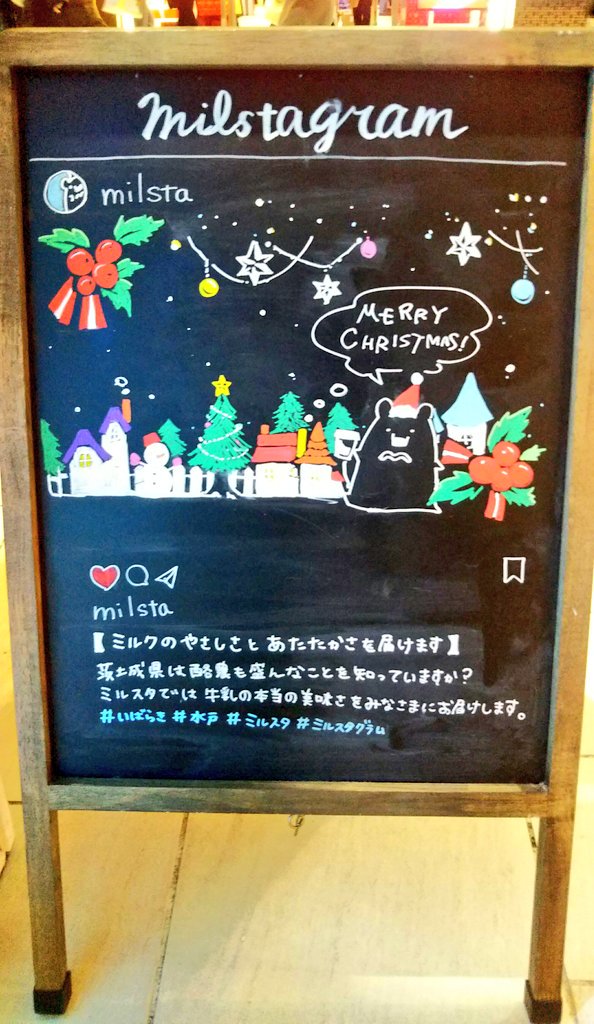 milstagram
milsta
MERRY
CHRISTMAS!
milsta
【ミルクのやさしさと あたたかさを届けます】
茨城県は酪農も盛んなことを知っていますか？
ミルスタでは 牛乳の本当の美味さをみなさまにお届けします。
#いばらき #水戸 #ミルスタ #ミルスタグラム